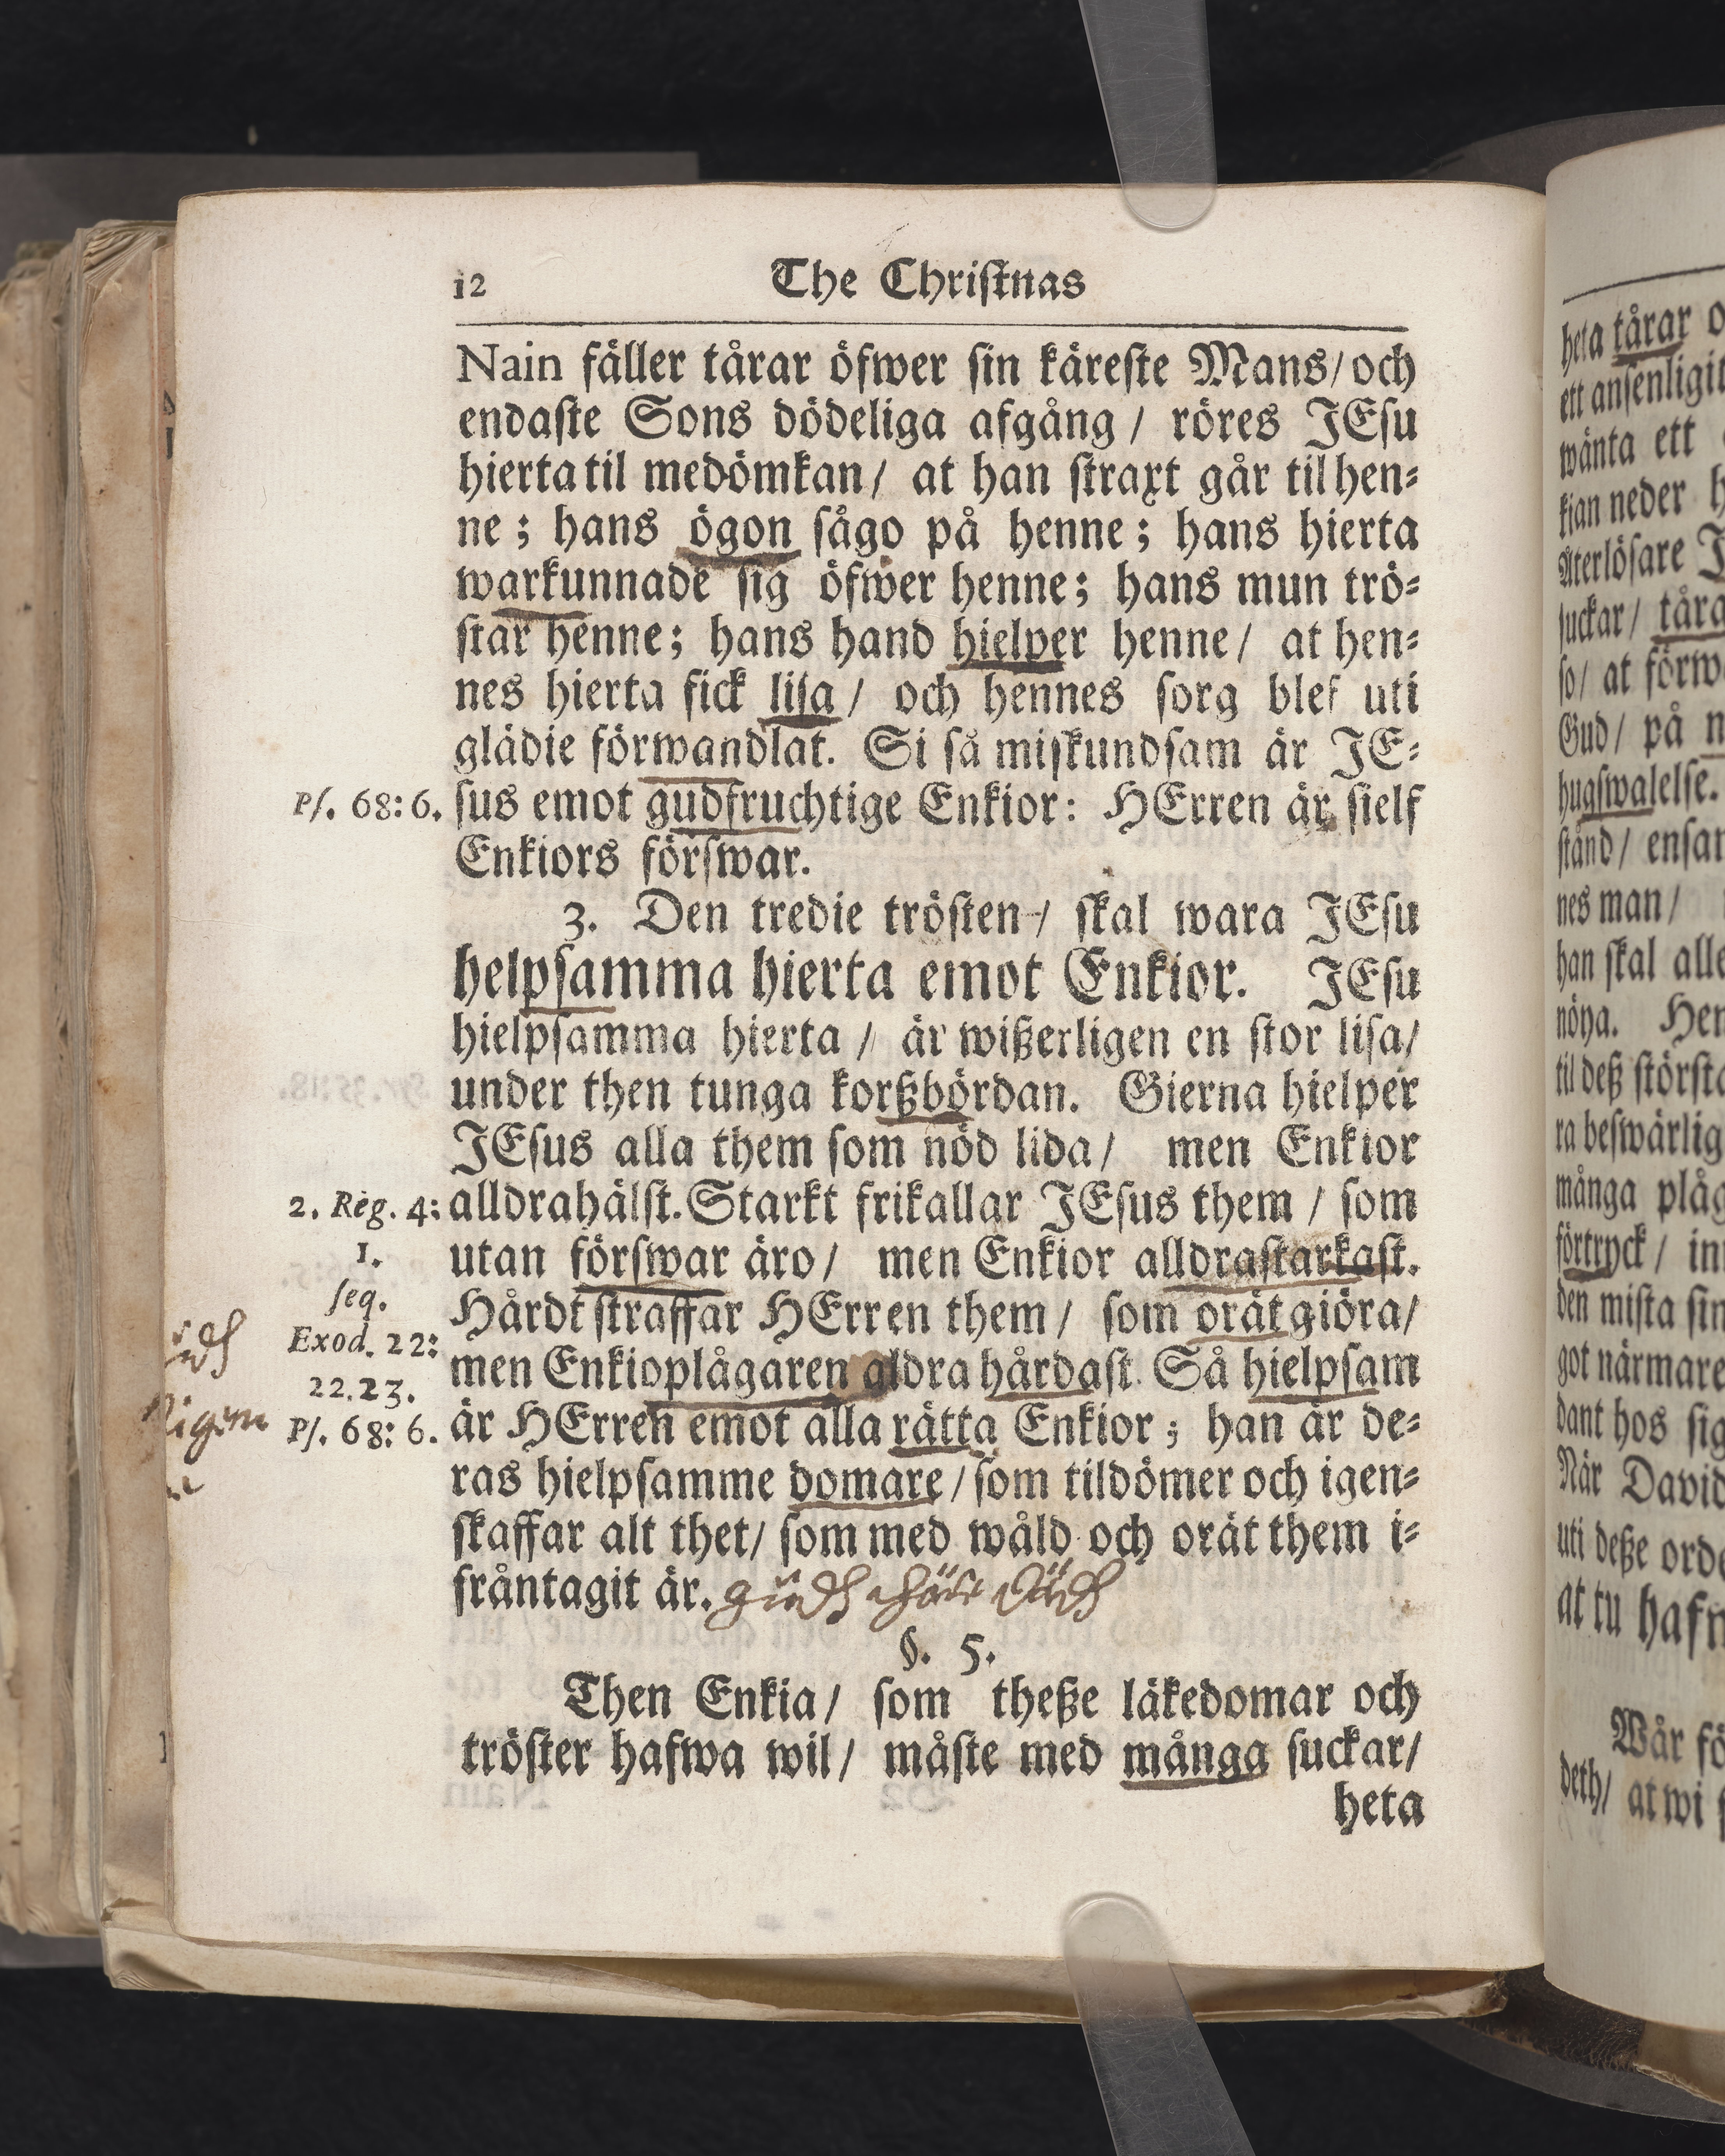 12
The Christnas
Nain fäller tårar öfwer sin käreste Mans/ och
endaste Sons dödeliga afgång / röres JEsu
hierta til medömkan/ at han straxt går til hen=
ne ; hans ögon sågo på henne ; hans hierta
warkunnade sig öfwer henne; hans mun trö=
star henne; hans hand hielper henne/ at hen=
nes hierta fick lisa / och hennes sorg blef uti
glädie förwandlat. Si så miskundsam är JE=
Ps. 68: 6.
sus emot gudfruchtige Enkior: HErren är sielf
Enkiors förswar.
3. Den tredie trösten / skal wara JEsu
helpsamma hierta emot Enkior. JEsu
hielpsamma hierta / är wißerligen en stor lisa/
under then tunga korßbördan. Gierna hielper
JEsus alla them som nöd lida/ men Enkior
2. Reg. 4:
alldrahälst. Starkt frikallar JEsus them / som
1.
utan förswar äro/ men Enkior alldrastarkast.
seq.
Hårdt straffar HErren them/ som orät giöra/
Exod. 22:
men Enkioplågaren aldra hårdast. Så hielpsam
22. 23.
är HErren emot alla rätta Enkior ; han är de=
Ps. 68: 6.
ras hielpsamme domare / som tildömer och igen=
skaffar alt thet/ som med wåld och orät them i=
fråntagit är.
§. 5.
Then Enkia/ som theße läkedomar och
tröster hafwa wil/ måste med många suckar/
heta
heta tårar
ett ansenligit
wänta ett
kian neder
Återlösare
suckar/
so/ at
Gud/ på
hugswalelse.
stånd/
nes man/
han skal
nöya.
til deß
många
förtryck/
den mista
got närmare
dant hos
När David
uti deße
at tu
Wår
deth/ at wi